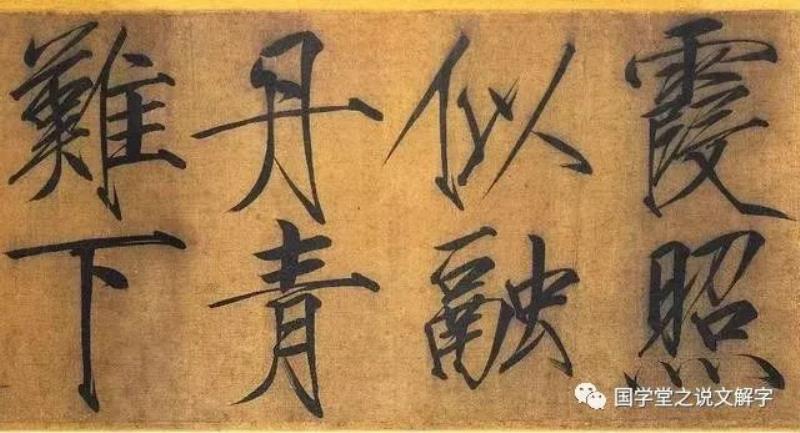 霞照
似融
丹青
難下
国学堂之说文解字